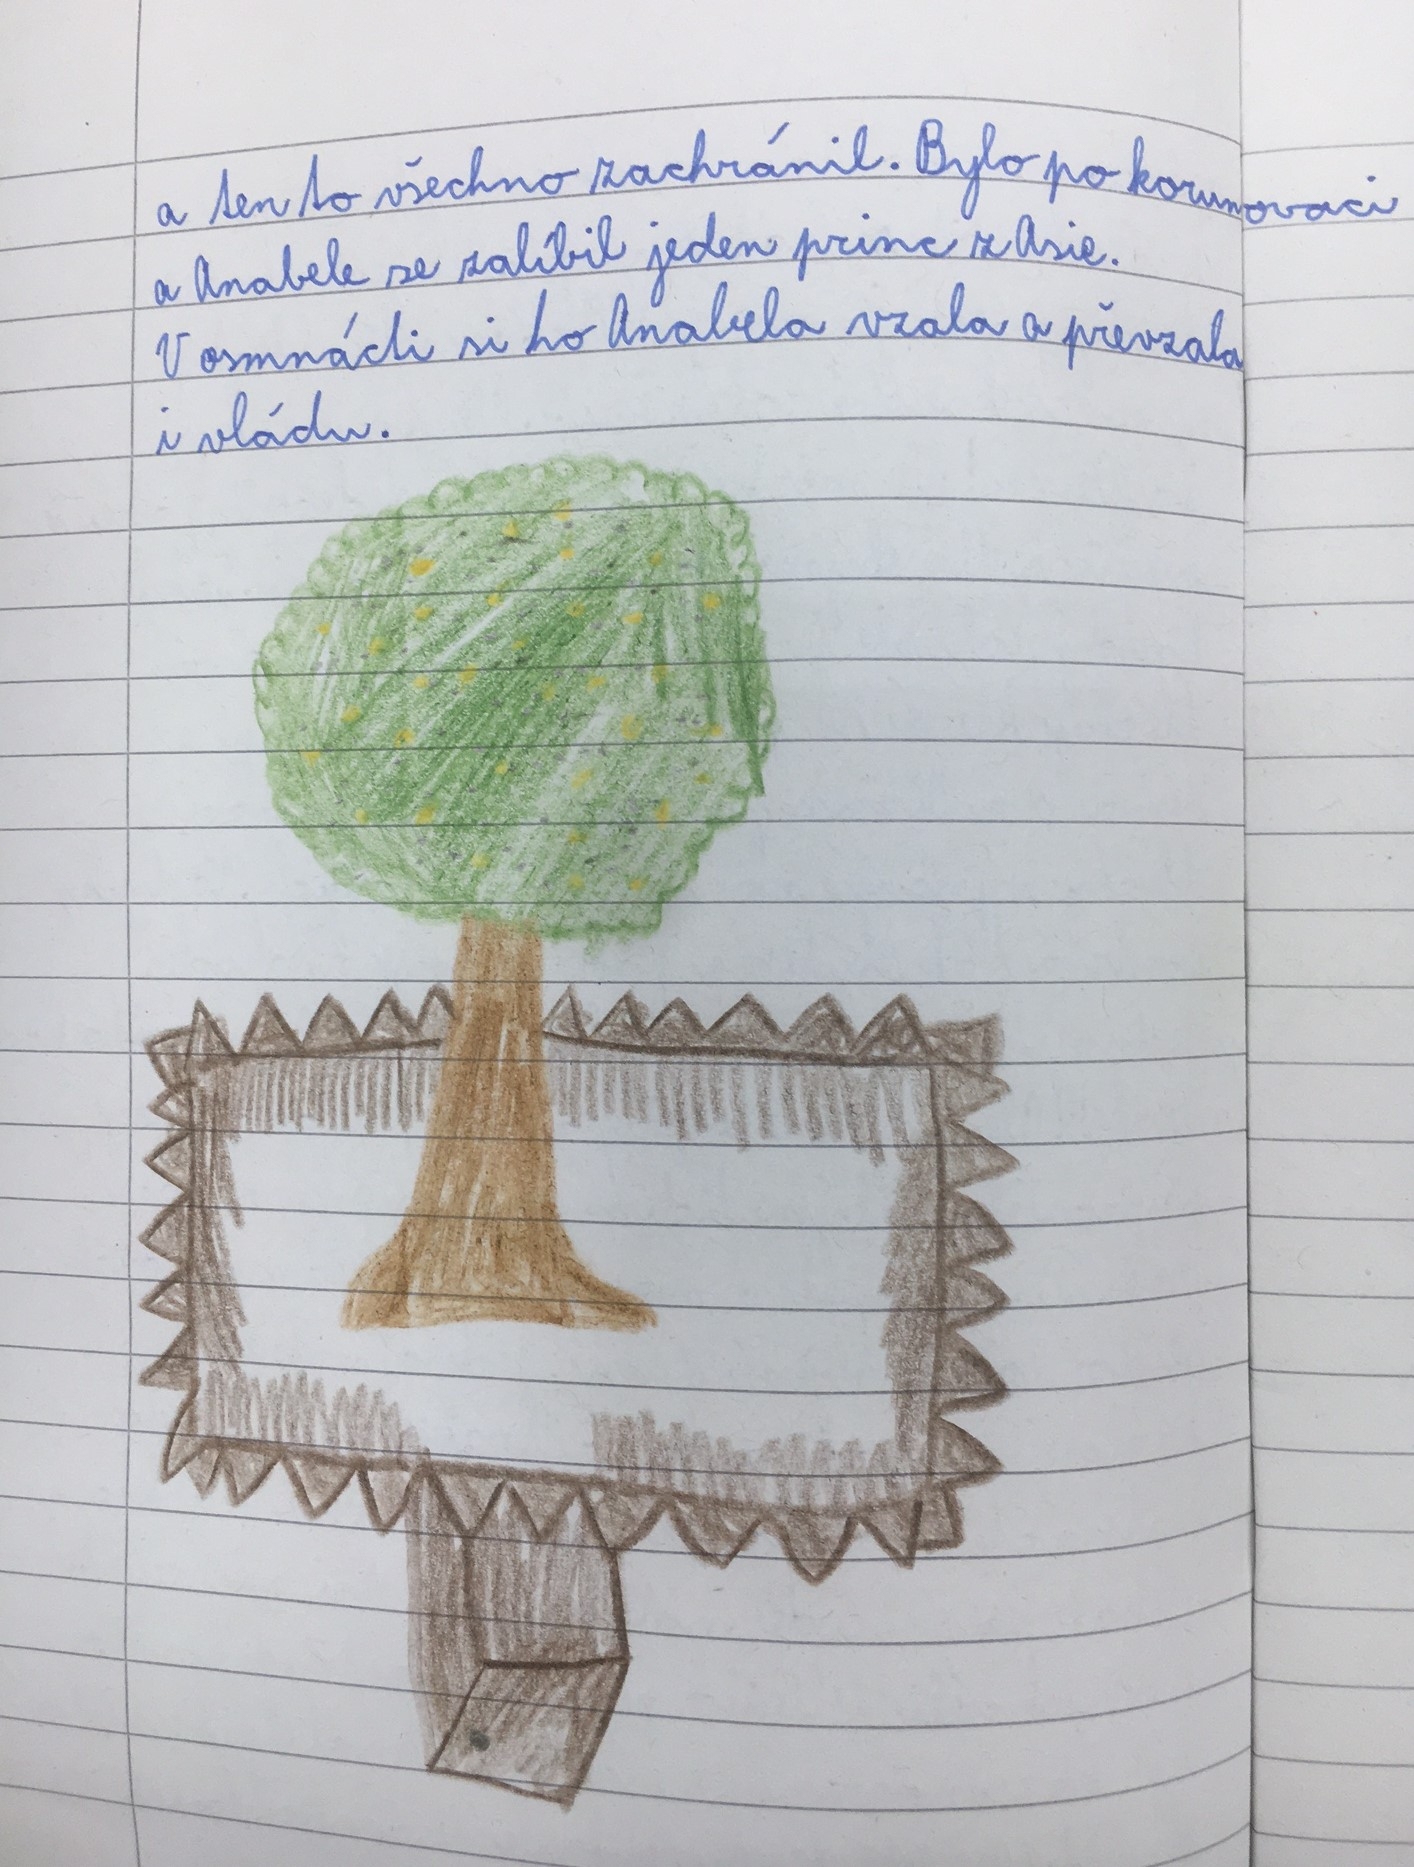 a ten to všechno zachránil. Bylo po korunovaci
a Anabele se zalíbil jeden princ z Asie.
V osmnácti si ho Anabela vzala a převzala
i vládu.